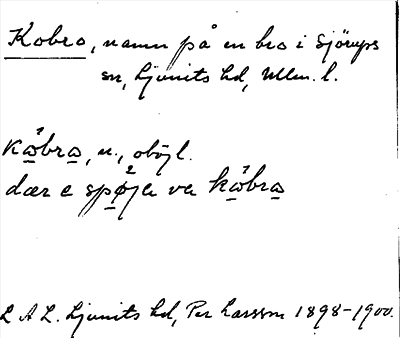 Kobro, namn på en bro i Sjörups
sn, Ljunits hd, Mllm. l.
kåbra, n., oböjl.
dær e spøja ve kåbra
L A L. Ljunits hd, Per Larsson 1898-1900.